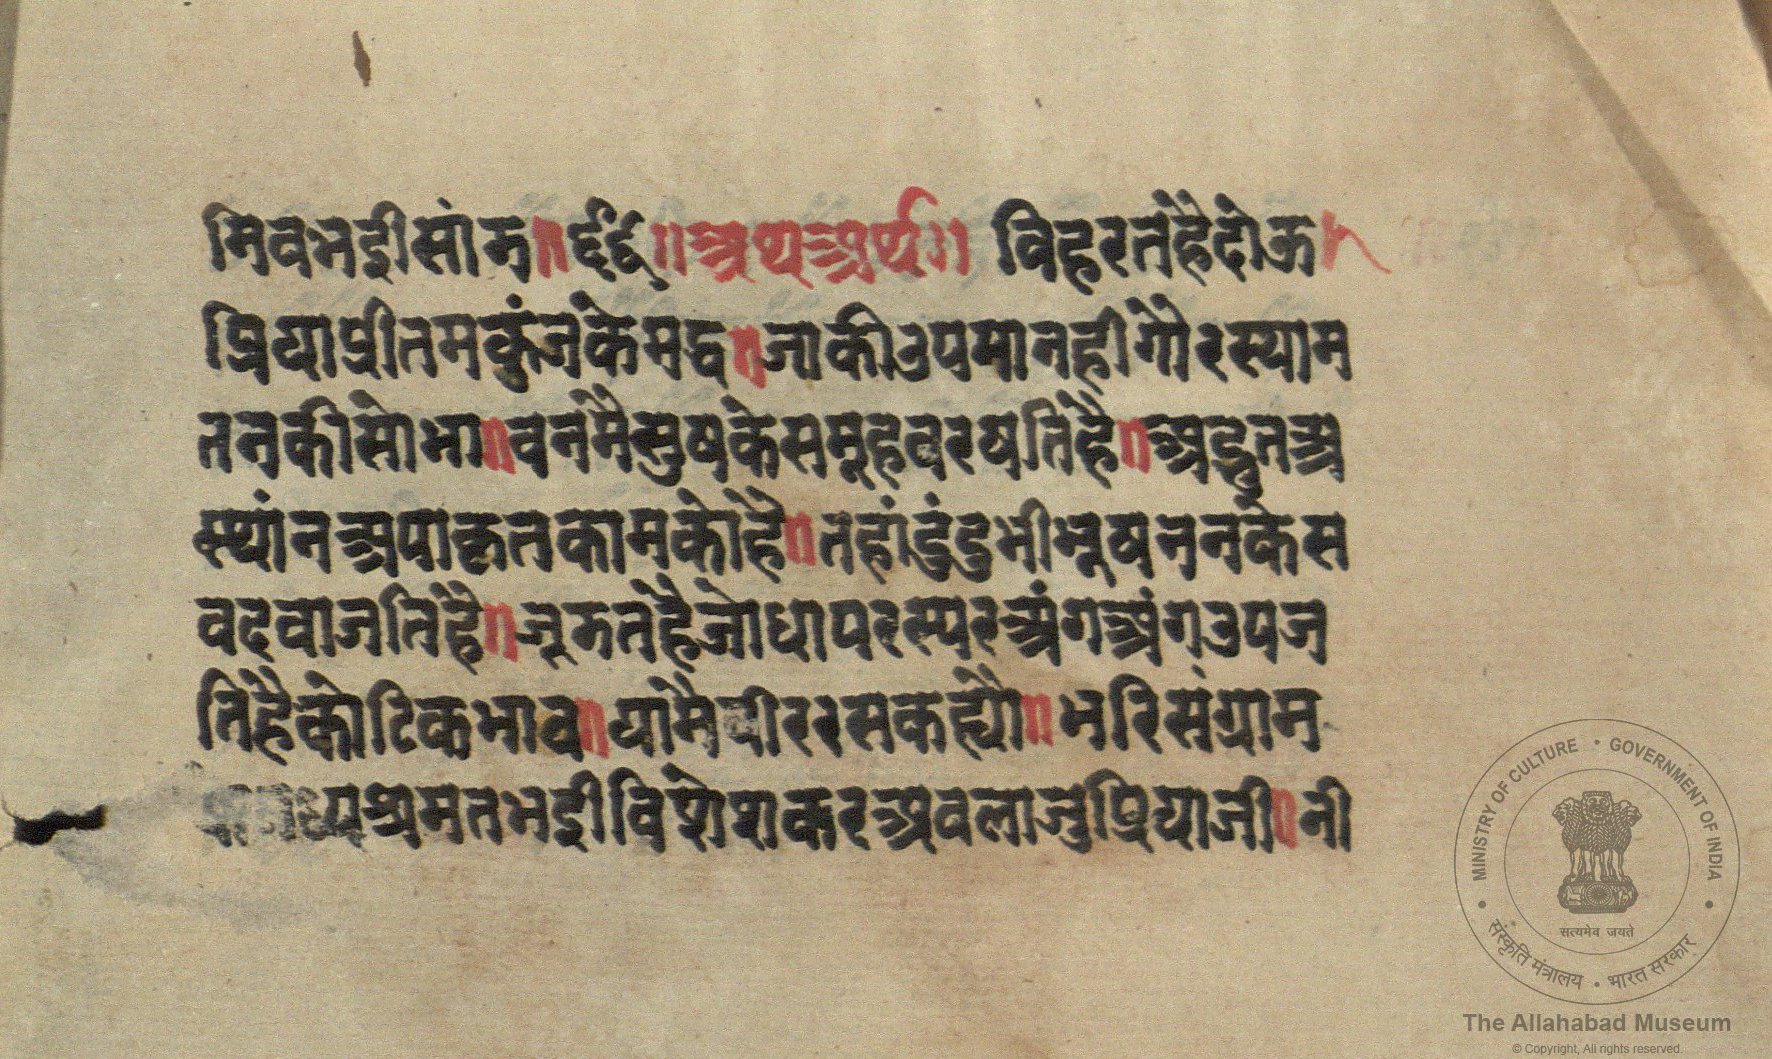 मिवभईसांऊ॥६६॥अथअर्थ॥ विहरतहैदोऊ॥
प्रियाप्रीतमकुंजकेमद्व॥जाकीउपमानहीगौरस्याम
तनकीसोभा॥वनमैसुषकेसमूहवरषतिहै॥अद्भुतअ
स्थांनअपाकृतकामकोहै॥तहांदुंदुभीभूषननकेस
वदवाजतिहै॥जूझतहैजोधापरस्परअंगअंगउपज
तिहैकोटिकभाव॥यामैवीररसकह्यौ॥भरिसंग्राम
श्रमतभईविशेशकरअवलाजुप्रियाजी॥नी
MINISTRY OF CULTURE • GOVERNMENT OF INDIA
सत्यमेव जयते
संस्कृति मंत्रालय • भारत सरकार
The Allahabad Museum
© Copyright, All rights reserved.